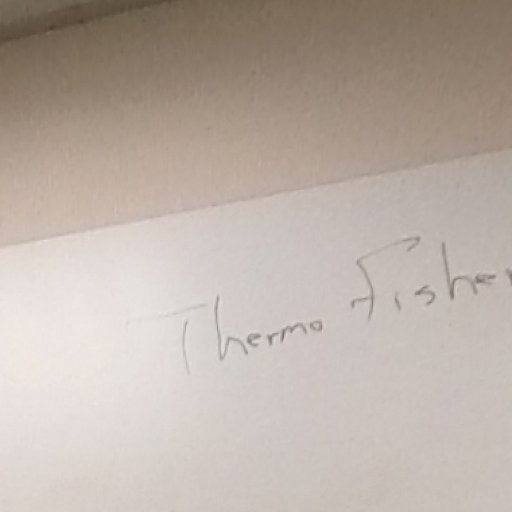 Thermo Fisher